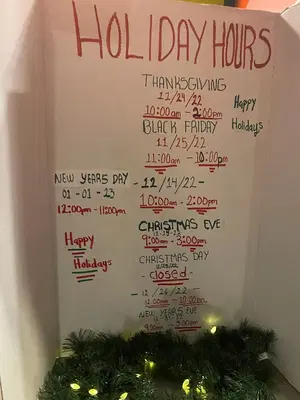 HOLIDAY HOURS
THANKSGIVING
11/24/22
10:00am - 2:00pm
Happy
Holidays
BLACK FRIDAY
11/25/22
11:00am - 10:00pm
NEW YEARS DAY
01-01-23
12:00pm - 11:00pm
- 12/14/22 -
10:00am - 2:00pm
CHRISTMAS EVE
9:00am - 3:00pm
Happy
Holidays
CHRISTMAS DAY
- closed -
- 12/26/22 -
12:00pm - 10:00pm
NEW YEARS EVE
9:00am - 3:00pm